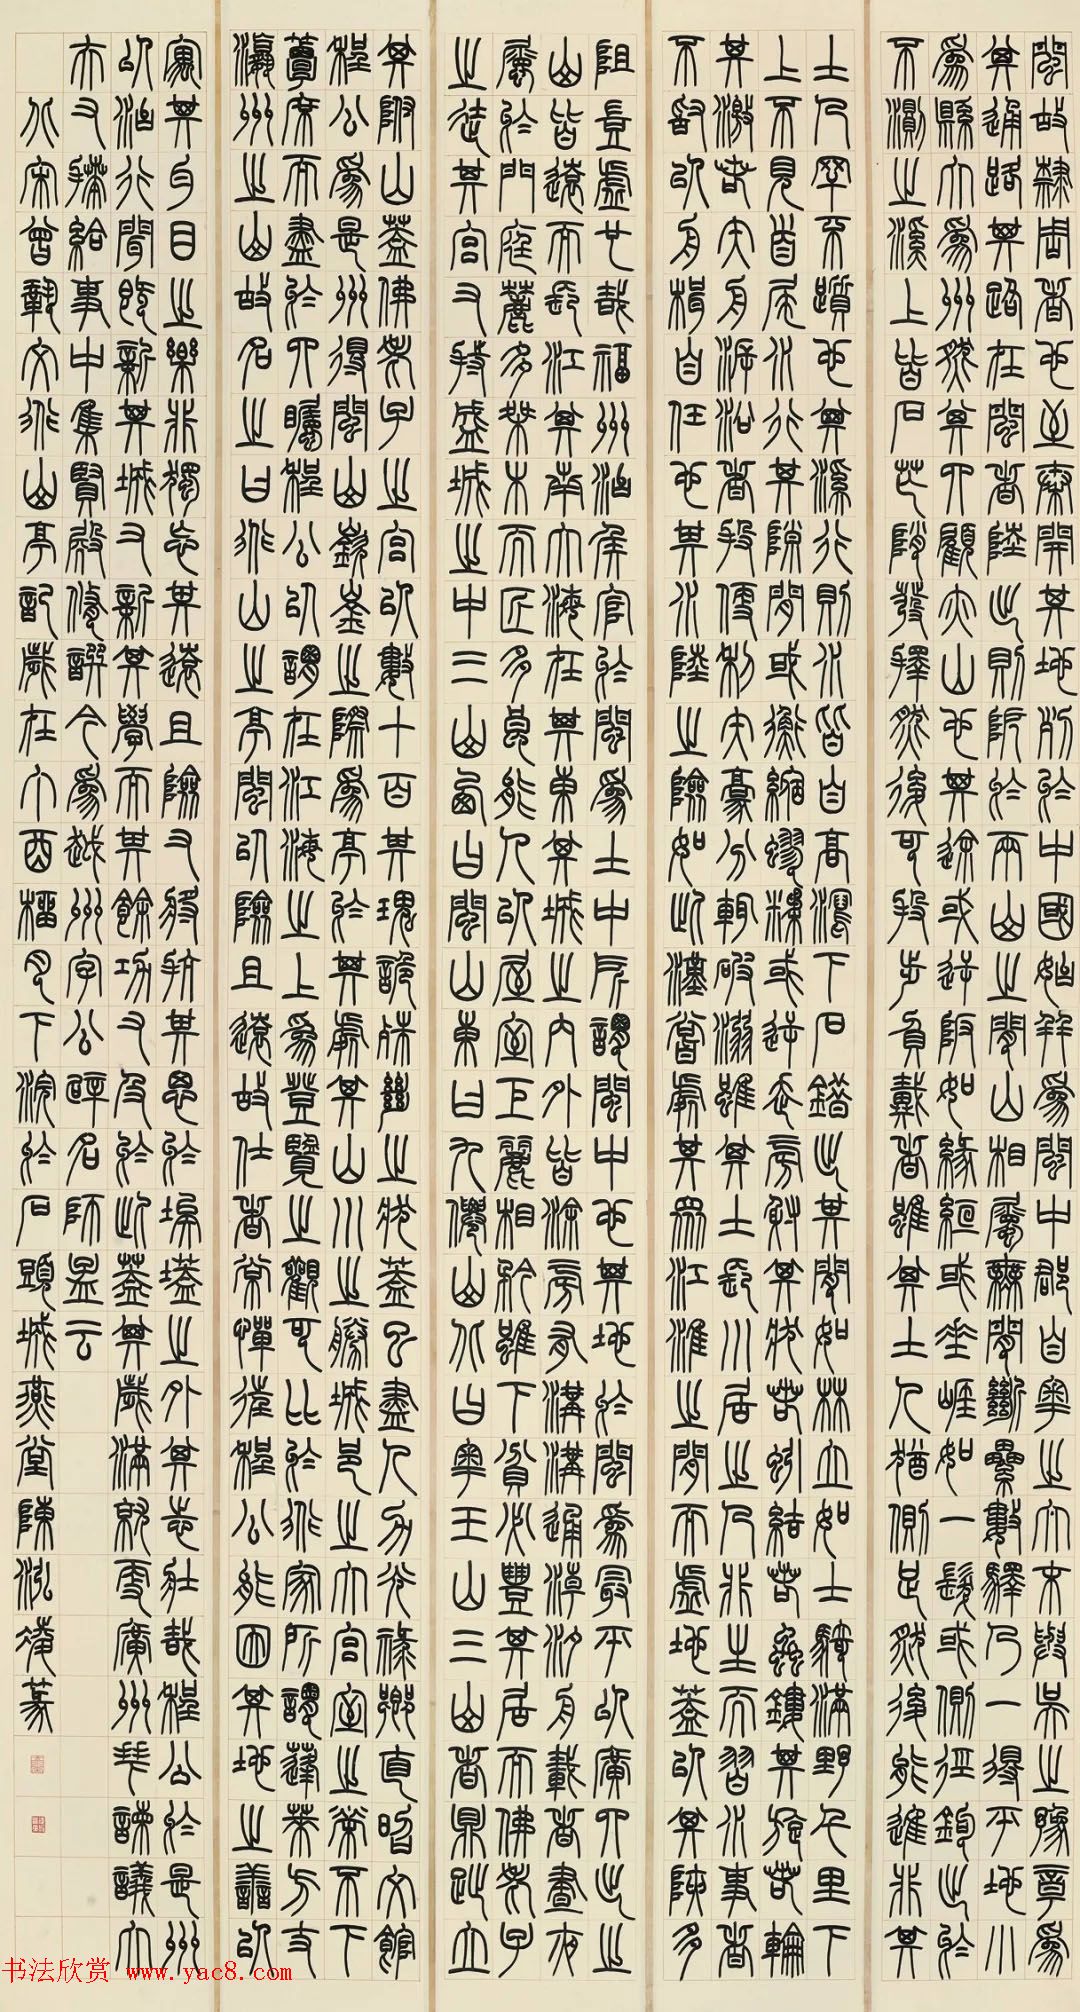 閩故隸周者也至秦開其地列於中國始并為閩中郡自粵之太末與吳之豫章為
其通路其路在閩者陸出則阸於兩山之間山相屬無間斷累數驛乃一得平地小
為縣大為州然其四顧亦山也其途或逆坂如緣絙或垂崖如一髮或側徑鉤出於
不測之溪上皆石芒峭發擇然後可投步負戴者雖其土人猶側足然後能進非其
土人罕不躓也其溪行則水皆自高瀉下石錯出其間如林立如士騎滿野千里下
上不見首尾水行其隙間或衡縮蟉糅或逆走旁射其狀若蚓結若蟲鏤其旋若輪
其激若矢舟泝沿者投便利失毫分輒破溺雖其土長川居之人非生而習水事者
不敢以舟楫自任也其水陸之險如此漢嘗處其眾江淮之間而虛其地蓋以其陿多
阻豈虛也哉福州治侯官於閩為土中所謂閩中也其地於閩為最平以廣四出之
山皆遠而長江其南大海在其東其城之內外皆涂旁有溝溝通潮汐舟載者晝夜
屬於門庭麓多桀木而匠多良能人以屋室鉅麗相矜雖下貧必豐其居而佛老子
之徒其宮又特盛城之中三山西曰閩山東曰九僊山北曰粵王山三山者鼎趾立
其附山蓋佛老子之宮以數十百其瑰詭殊絕之狀蓋已盡人力光祿卿直昭文館
程公為是州得閩山嶔崟之際為亭於其處其山川之勝城邑之大宮室之榮不下
簟席而盡於四矚程公以謂在江海之上為登覽之觀可比於道家所謂蓬萊方丈
瀛州之山故名之曰道山之亭閩以險且遠故仕者常憚往程公能因其地之善以
寓其耳目之樂非獨忘其遠且險又將抗其思於埃壒之外其志壯哉程公於是州
以治行聞既新其城又新其學而其餘功又及於此蓋其歲滿就更廣州拜諫議大
夫又拜給事中集賢殿修撰今為越州字公闢名師孟云
北宋曾鞏文道山亭記歲在丁酉榴月下浣於石頭城燕堂陳泓篆
书法欣赏 www.yac8.com